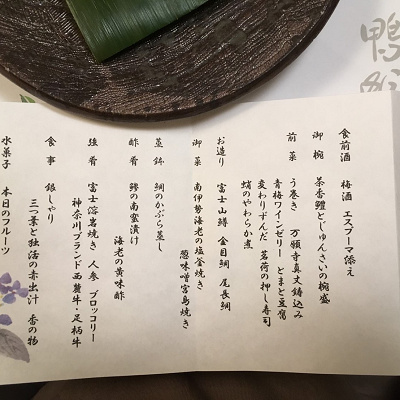 食前酒 梅酒 エスプーマ添え
御椀 茶香鱧とじゅんさいの椀盛
前菜 う巻き 万願寺真丈鋳込み
青梅ワインゼリー とまと豆腐
変わりずんだ 茗荷の押し寿司
蛸のやわらか煮
お造り 富士山鱒 金目鯛 尾長鯛
御菜 南伊勢海老の塩釜焼き
葱味噌宮島焼き
蓋鉢 鯛のかぶら蒸し
酢肴 鱧の南蛮漬け
海老の黄味酢
強肴 富士溶岩焼き 人参 ブロッコリー
神奈川ブランド西麓牛・足柄牛
食事 銀しゃり
三つ葉と独活の赤出汁 香の物
水菓子 本日のフルーツ
鴨